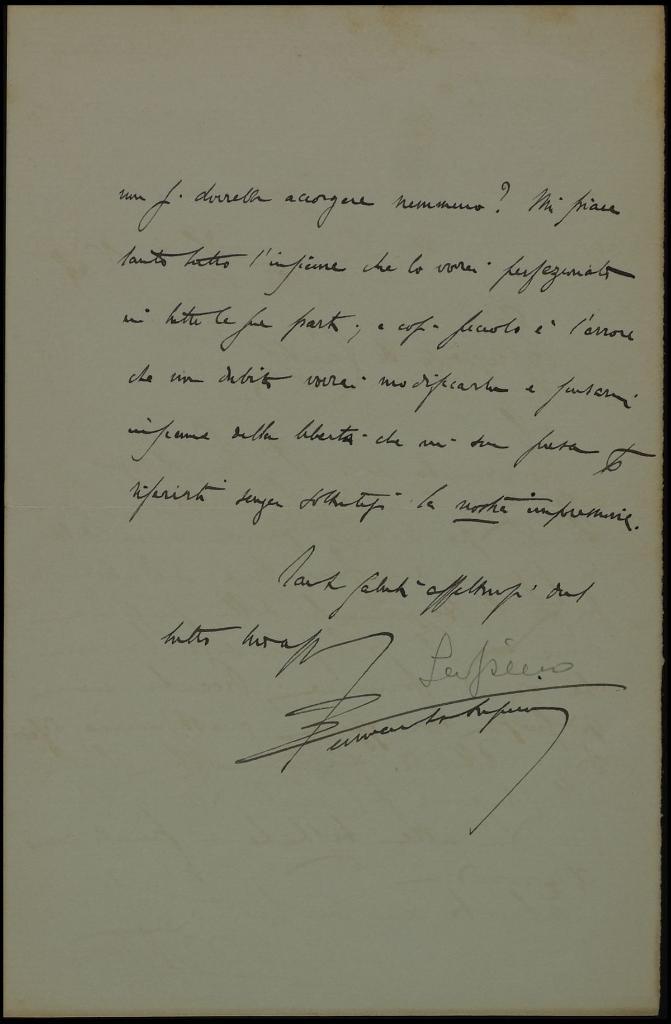 non si dovrebbe accorgere nemmeno? Mi piace
tanto tutto l'insieme che lo vorrei perfezionato
in tutte le sue parti; e così piccolo è l'errore
che non dubito vorrai modificarlo e scusarmi
insieme della libertà che mi son presa
riferirti senza sottintesi la nostra impressione.
Tanti saluti affettuosi dal
tutto tuo aff